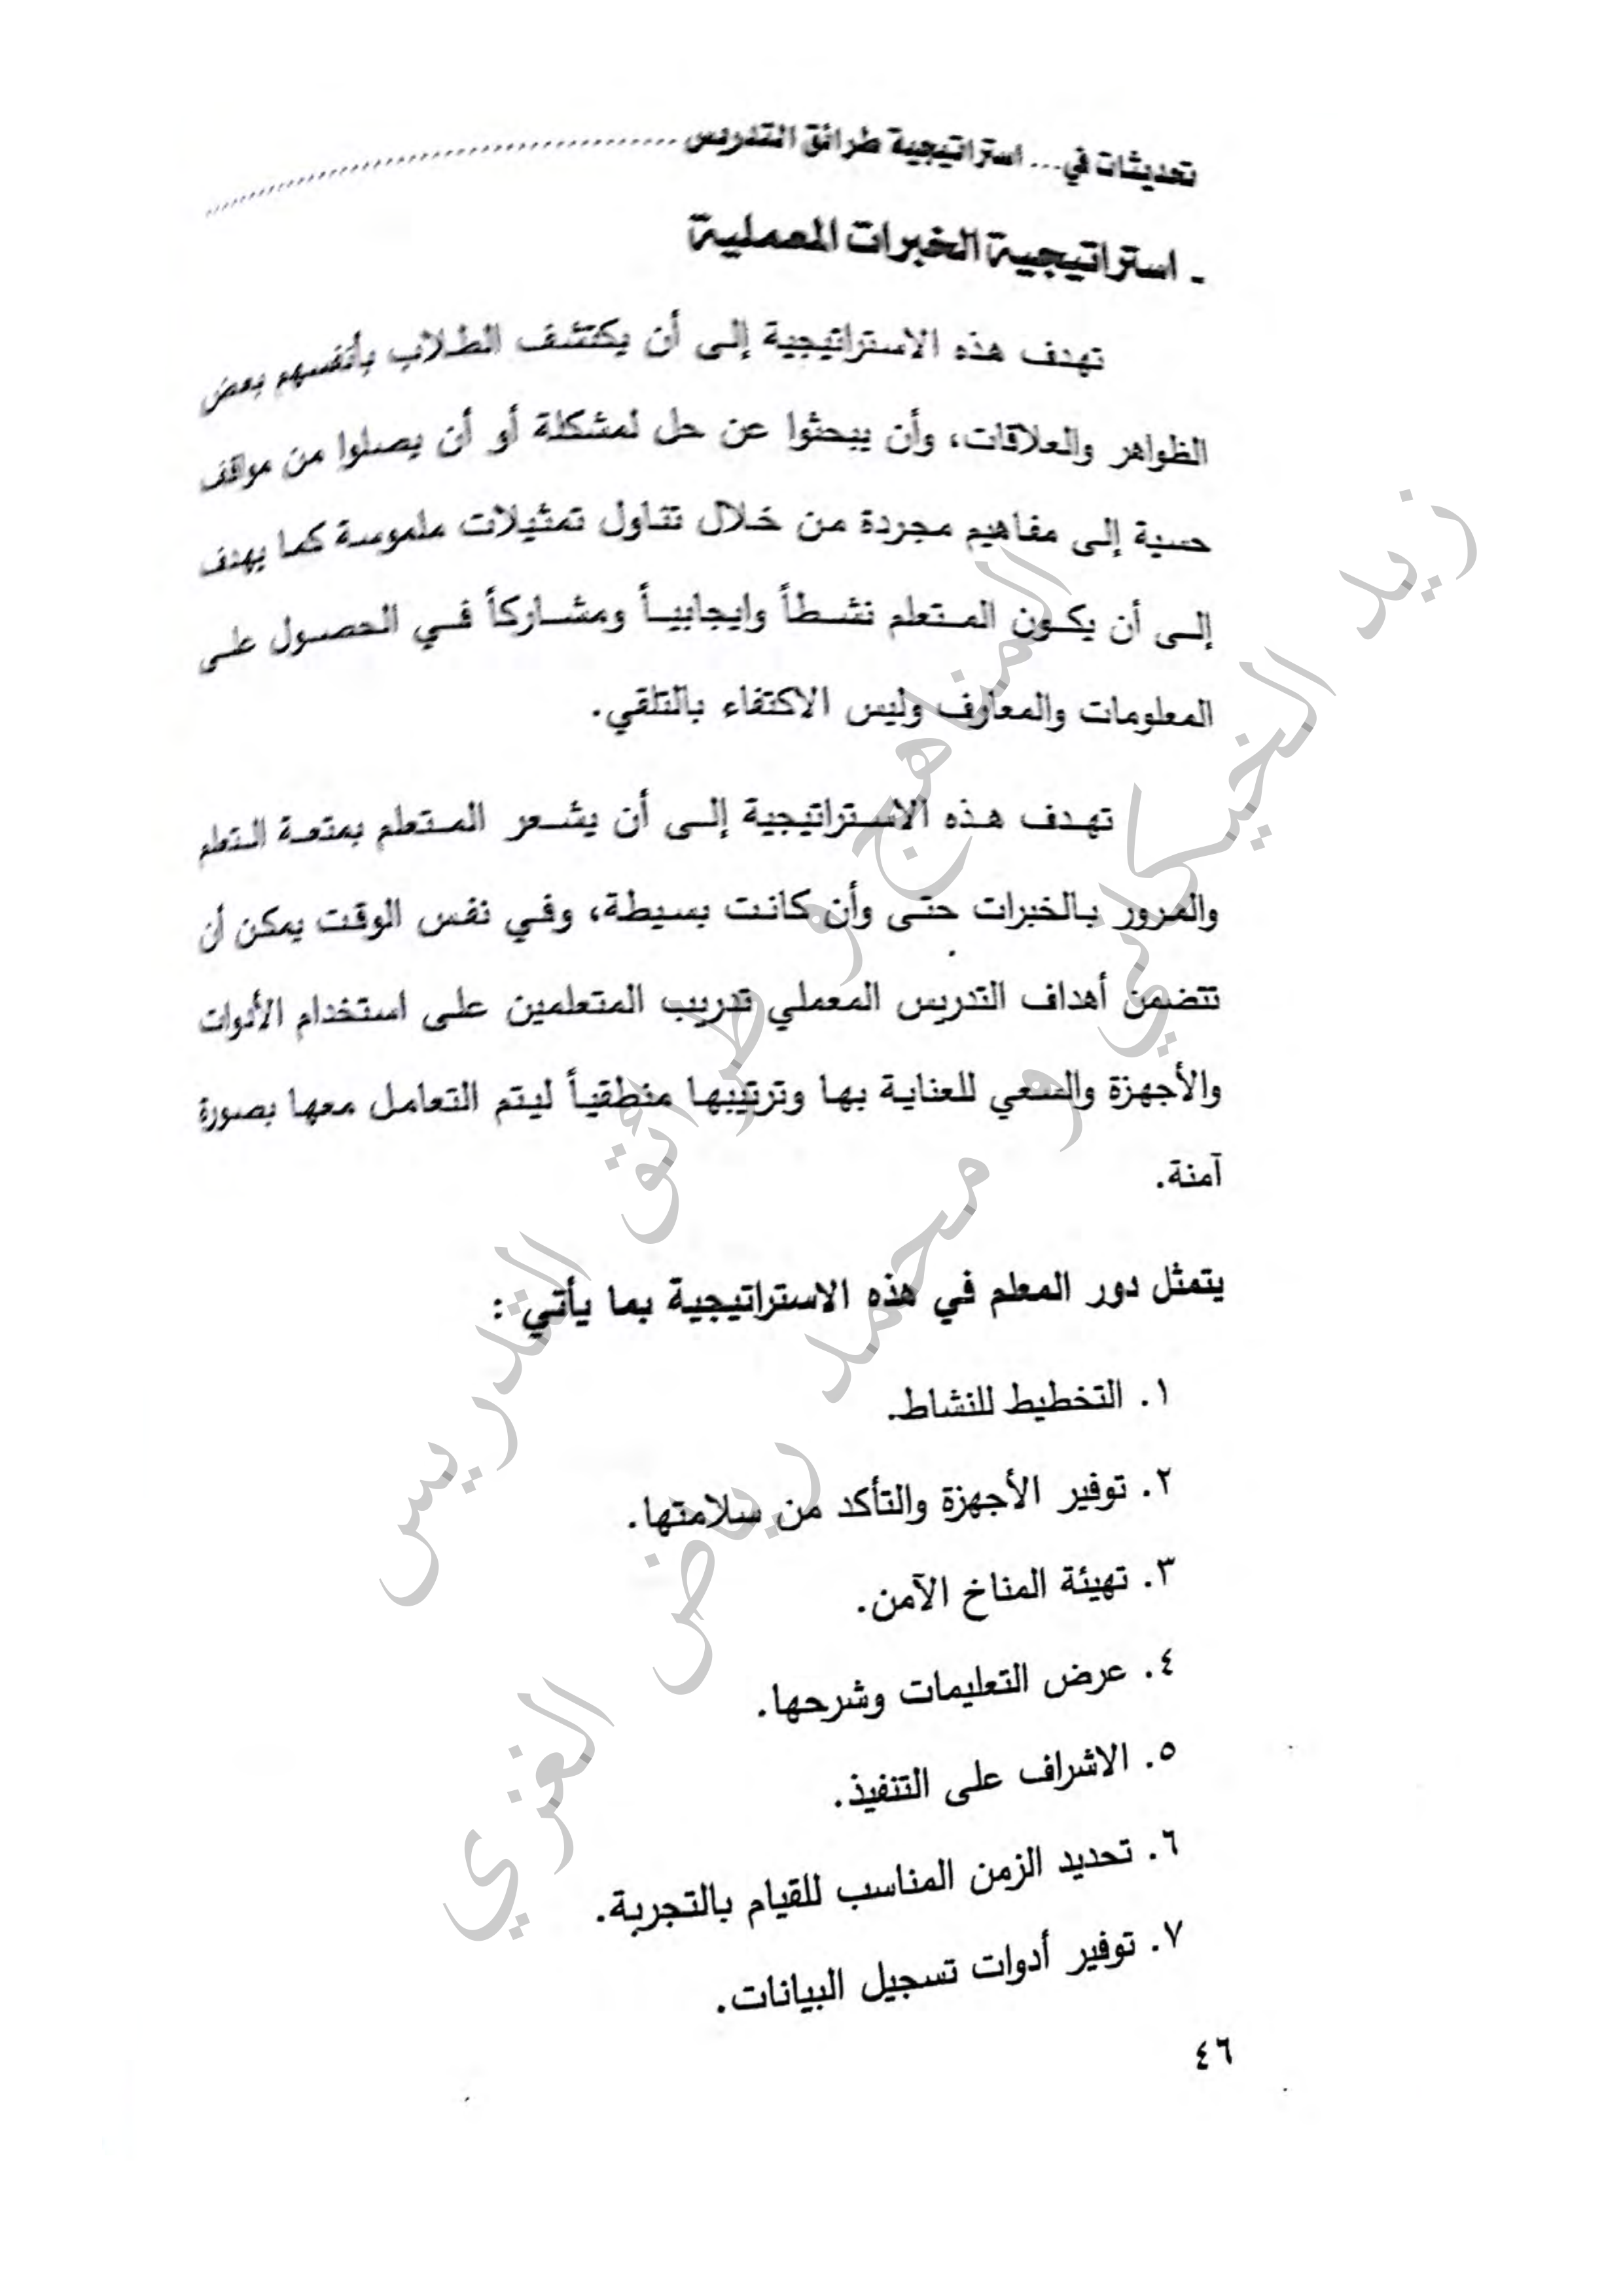 تحديثات في... استراتيجية طرائق التدريس
- استراتيجية الخبرات المعملية
تهدف هذه الاستراتيجية إلى أن يكتشف الطلاب بأنفسهم بعض
الظواهر والعلاقات، وأن يبحثوا عن حل لمشكلة أو أن يصلوا من مواقف
حسية إلى مفاهيم مجردة من خلال تناول تمثيلات ملموسة كما يهدف
إلى أن يكون المتعلم نشطاً وايجابياً ومشاركاً في الحصول على
المعلومات والمعارف وليس الاكتفاء بالتلقي.
تهدف هذه الاستراتيجية إلى أن يشعر المتعلم بمتعة التعلم
والمرور بالخبرات حتى وأن كانت بسيطة، وفي نفس الوقت يمكن أن
تتضمن أهداف التدريس المعملي تدريب المتعلمين على استخدام الأدوات
والأجهزة والسعي للعناية بها وترتيبها منطقياً ليتم التعامل معها بصورة
آمنة.
يتمثل دور المعلم في هذه الاستراتيجية بما يأتي :
١. التخطيط للنشاط.
٢. توفير الأجهزة والتأكد من سلامتها.
٣. تهيئة المناخ الآمن.
٤. عرض التعليمات وشرحها.
٥. الاشراف على التنفيذ.
٦. تحديد الزمن المناسب للقيام بالتجربة.
٧. توفير أدوات تسجيل البيانات.
٤٦
المناهج و طرائق التدريس
زيد الخيكاني و محمد رياض الغزي